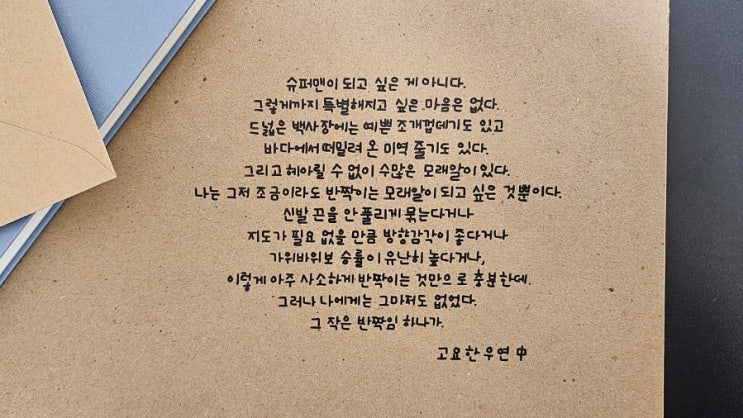 슈퍼맨이 되고 싶은 게 아니다.
그렇게까지 특별해지고 싶은 마음은 없다.
드넓은 백사장에는 예쁜 조개껍데기도 있고
바다에서 떠밀려 온 미역 줄기도 있다.
그리고 헤아릴 수 없이 수많은 모래알이 있다.
나는 그저 조금이라도 반짝이는 모래알이 되고 싶은 것뿐이다.
신발 끈을 안 풀리게 묶는다거나
지도가 필요 없을 만큼 방향감각이 좋다거나
가위바위보 승률이 유난히 높다거나,
이렇게 아주 사소하게 반짝이는 것만으로 충분한데.
그러나 나에게는 그마저도 없었다.
그 작은 반짝임 하나가.
고요한 우연 中